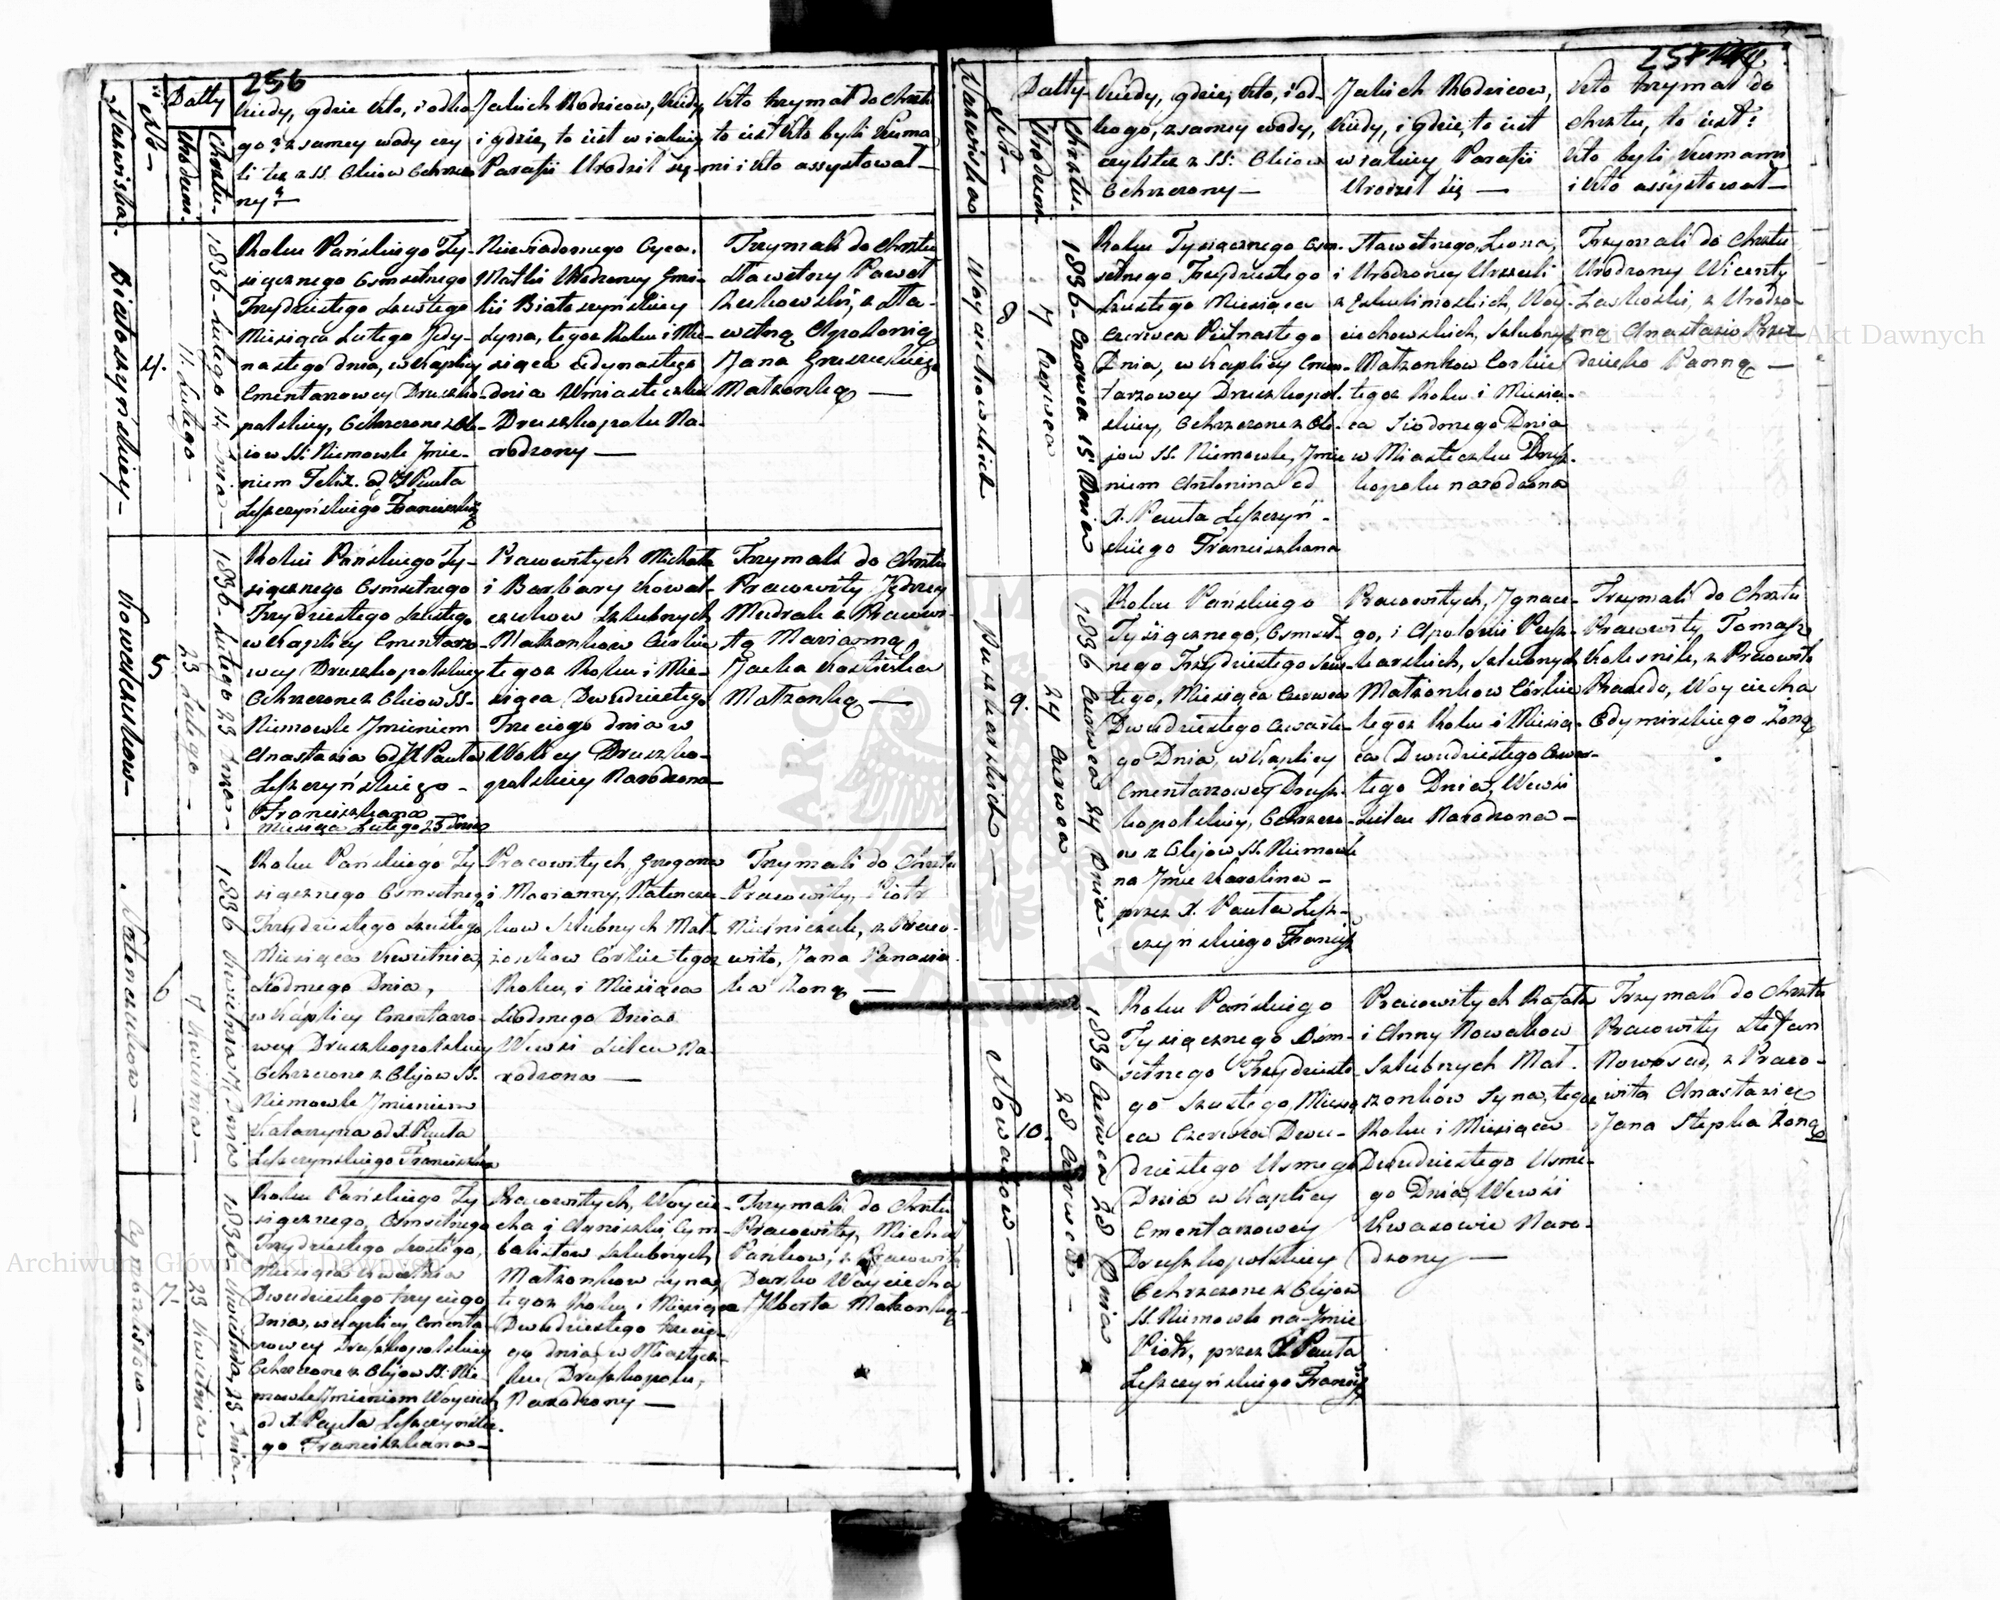 256
Nazwiska.
No
Datty
Urodzeni.
Chrztu.
Kiedy, gdzie kto, i od ko-
go? z samey wody czy
li też z SS. Oleiow Ochrzczo
ny?
Jakich Rodzicow, kiedy
i gdzie, to iest w iakiey
Parafii Urodził się
Kto trzymał do Chrztu
to iest kto byli kuma
mi i kto assystował
Białoszyńskiey
4.
11. Lutego
1836 Lutego 14 Dnia
Roku Pańskiego Ty-
siącznego Osmsetnego
Trzydziestego Szustego
Miesiąca Lutego Jedy-
nastego dnia, w kaplicy
Cmentarzowey Druszko-
polskiey, Ochrzczone z Ole-
iow SS. Niemowle Jmie-
niem Felix. od X Pawła
Leszczyńskiego Franciszka
Niewiadomego Oyca.
Matki Urodzoney Emi-
lii Białoszyńskiey
syna, tegoz Roku i Mie-
siąca iedynastego
dnia w miasteczku
Druszkopolu Na-
rodzony
Trzymali do Chrztu
Sławetny Paweł
z Sła-
wetną Apolonią
Jana
Małżonką
Kowalczukow
5
23 Lutego
1836 Lutego 23 Dnia
Roku Pańskiego Ty-
siącznego Osmsetnego
Trzydziestego Szustego
w kaplicy Cmentarzo-
wey Druszkopolskiey
Ochrzczone z Oleiow SS.
Niemowle Jmieniem
Anastazia od X Pawła
Leszczyńskiego
Franciszkana
Miesiąca Lutego 23 Dnia
Pracowitych Michała
i Barbary Kowal-
czukow Szlubnych
Małżonkow Corka
tegoz Roku i Mie-
siąca Dwudziestego
Trzeciego dnia w
Wolicy Druszko-
polskiey Narodzona
Trzymali do Chrztu
Pracowity Jędrzey
Mudrak z Pracowi-
tą Marianną
Jacka
Małżonką
6
7 Kwietnia
1836 Kwietnia 7 Dnia
Roku Pańskiego Ty-
siącznego Osmsetnego
Trzydziestego Szustego
Miesiąca Kwietnia,
Siodmego Dnia,
w kaplicy Cmentarzo-
wey Druszkopolskiey
Ochrzczone z Oleiow SS.
Niemowle Jmieniem
Katarzyna od X. Pawła
Leszczynskiego Franciszka
Pracowitych, Grzegorza
i Marianny,
kow Szlubnych Mał-
żonkow Córka tegoz
Roku, i Miesiąca
Siodmego Dnia
Wewsi Zielu Na-
rodzona
Trzymali do Chrztu
Pracowity, Piotr
z Praco-
witą, Jana
ka Żoną
Cymbalistow
7.
23 Kwietnia
1836 Kwietnia 23 Dnia
Roku Pańskiego Ty-
siącznego, Osmsetnego
Trzydziestego Szostego,
Miesiąca Kwietnia
Dwudziestego trzeciego
Dnia, w kaplicy Cmenta-
rzowey Druszkopolskiey
Ochrzczone z Oliow SS. Nie-
mowle Jmieniem Woyciech
od X. Pawła Leszczynskie-
go Franciszkana
Pracowitych, Woycie-
cha i Agnieszki Cym
balistow Szlubnych,
Małżonkow Syna,
tegoz Roku i Miesiąca
Dwudziestego trzecie-
go dnia, w Miastecz-
ku Druszkopolu,
Narodzony
Trzymali do Chrztu
Pracowity, Michał
z Pracowitą
Woyciecha
Małżonką
257
Nazwiska
No
Datty
Urodzeni
Chrztu.
Kiedy, gdzie, kto, i od-
kogo, z samey wody,
czyli też z SS: Oleiow
Ochrzczony
Jakich Rodzicow,
kiedy, i gdzie, to iest
w iakiey Parafii
Urodził się
Kto trzymał do
chrztu, to iest?
kto byli kumami
i kto assystował
Woyciechowskich
8
7 Czerwca
1836 Czerwca 15 Dnia
Roku Tysiącznego Osm-
setnego Trzydziestego
Szustego Miesiąca
Czerwca Pietnastego
Dnia, w kaplicy Cmen-
tarzowey Druszkopol-
skiey, Ochrzczone z Ole-
jow SS. Niemowle, Jmie
niem Antonina od
X. Pawła Leszczyń-
skiego Franciszkana
Sławetnego, Leona,
i Urodzoney Urszuli
Woy-
ciechowskich, Szlubnych
Małzonkow Corka
tegoz Roku i Miesią-
ca Siodmego Dnia
w Miasteczku Drusz-
kopolu narodzona
Trzymali do Chrztu
Urodzony Wicenty
z Urodzo-
ną Anastazio
Panną
Puszkarskich
9.
24 Czerwca
1836 Czerwca 24 Dnia
Roku Pańskiego
Tysiącznego, Osmset-
nego Trzydziestego Szus-
tego, Miesiąca Czerwca
Dwudziestego Czwarte-
go Dnia, w kaplicy
Cmentarzowey Drusz-
kopolskiey, Ochrzczo-
ne z Olejow SS. Niemowle
na Jmie Karolina
przez X. Pawła Lesz-
czyńskiego Francisz
Pracowitych, Jgnace-
go, i Apolonii Pusz-
karskich, Szlubnych
Małżonkow Córka
tegoz Roku i Miesią-
ca Dwudziestego Czwar-
tego Dnia, Wewsi
Zielu Narodzona
Trzymali do Chrztu
Pracowity Tomasz
Kolesnik, z Pracowitą
Woyciecha
Żoną
Nowakow
10.
28 Czerwca
1836 Czerwca 28 Dnia
Roku Pańskiego
Tysiącznego Osm-
setnego Trzydzieste-
go Szustego, Miesią
ca Czerwca Dwu-
dziestego Usmego
Dnia w kaplicy
Cmentarzowey
Druszkopolskiey
Ochrzczone z Olejow
SS. Niemowle na Jmie
Piotr, przez X Pawła
Leszczyńskiego Francisz
Pracowitych Rafała
i Anny Nowakow
Szlubnych Mał-
zonków Syna, tegoz
Roku i Miesiąca
Dwudziestego Usme-
go Dnia, Wewsi
Kwasowie Naro-
dzony
Trzymali do Chrztu
Pracowity Stefan
Nowosad, z Praco-
witą Anastazią
Jana Stepka Żoną
Archiwum Główne Akt Dawnych
Archiwum Główne Akt Dawnych